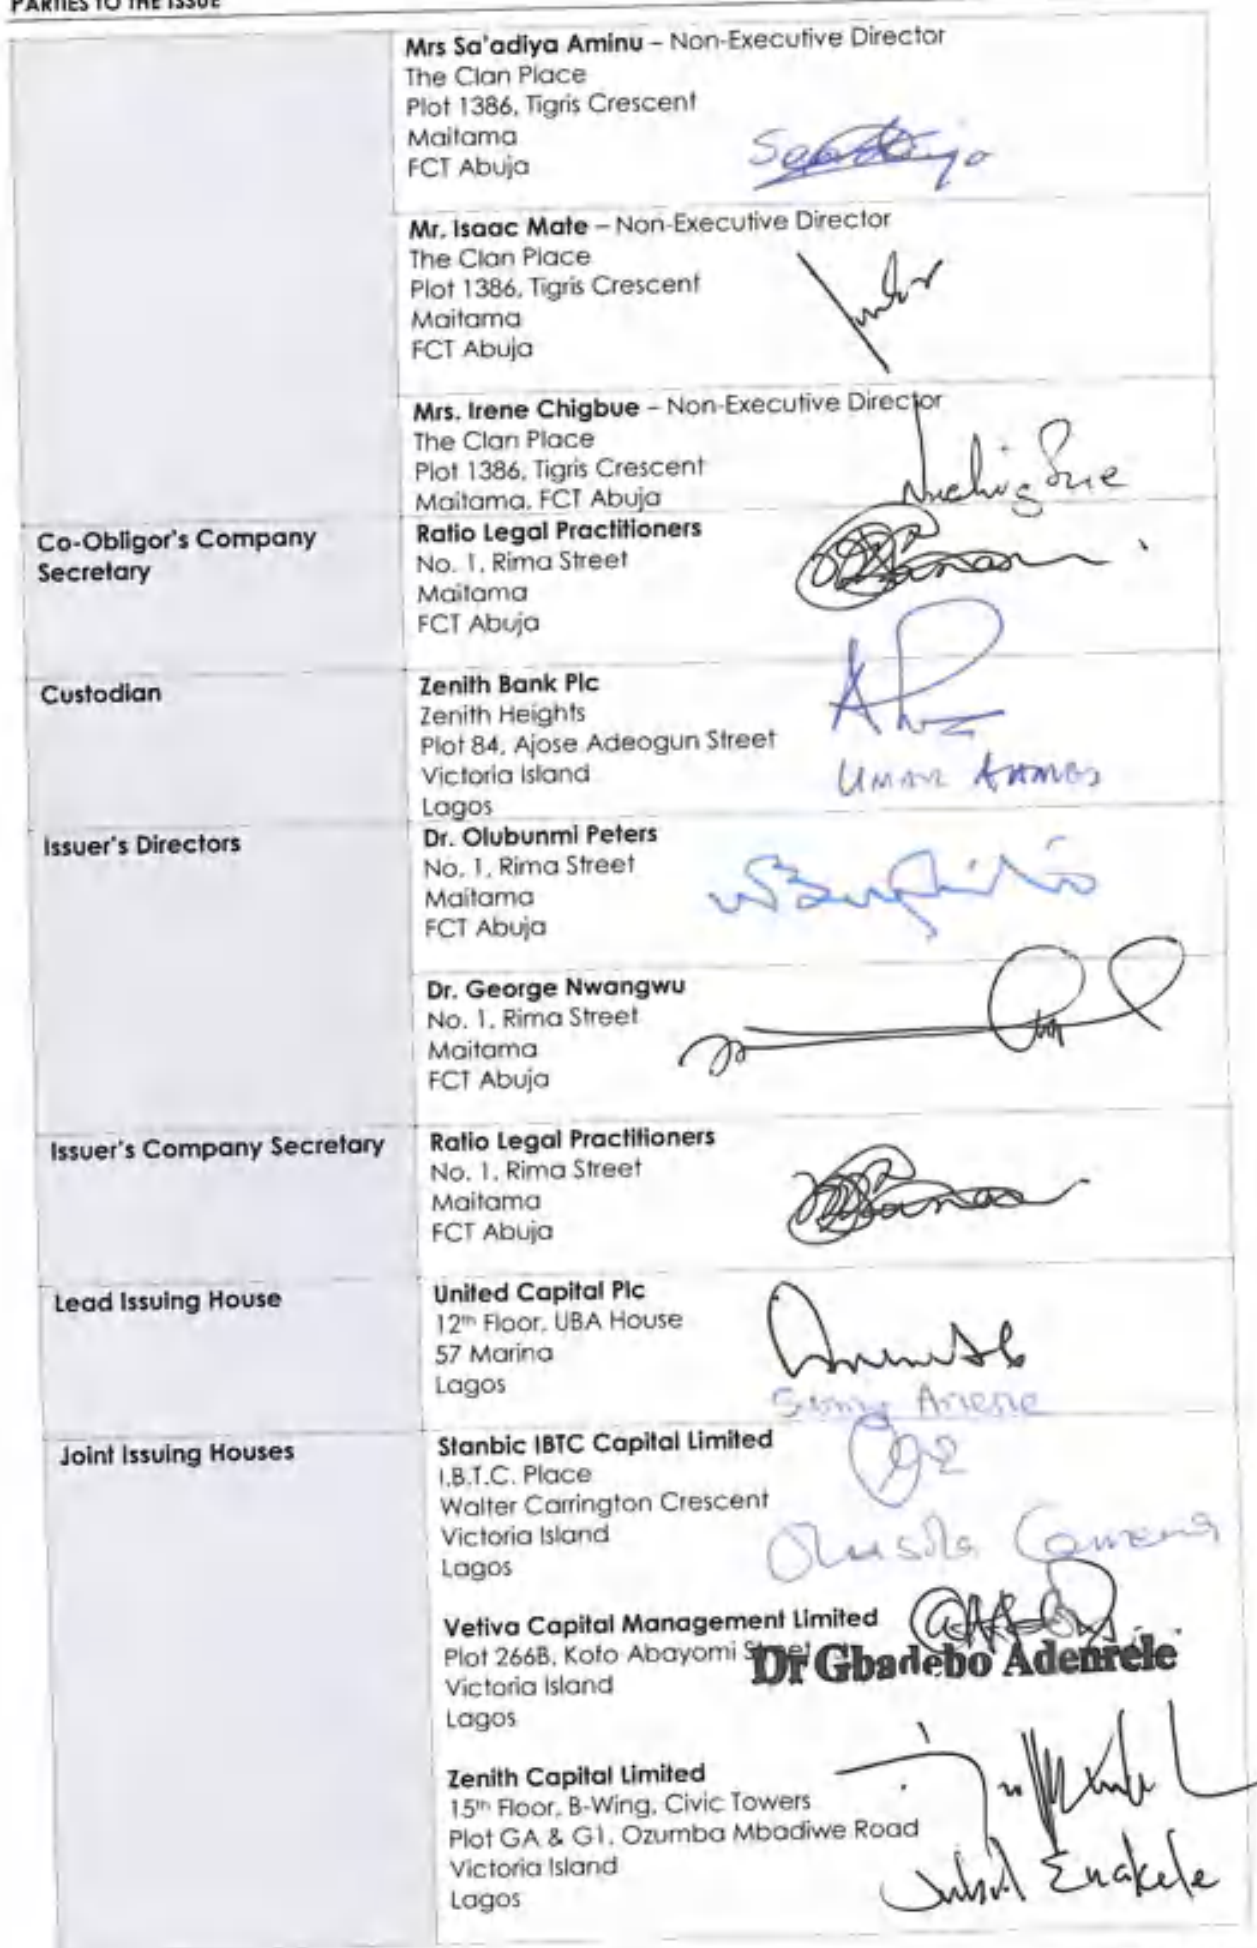 PARTIES TO THE ISSUE
Mrs Sa'adiya Aminu – Non-Executive Director
The Clan Place
Plot 1386, Tigris Crescent
Maitama
FCT Abuja
Mr. Isaac Mate – Non-Executive Director
The Clan Place
Plot 1386, Tigris Crescent
Maitama
FCT Abuja
Mrs. Irene Chigbue – Non-Executive Director
The Clan Place
Plot 1386, Tigris Crescent
Maitama, FCT Abuja
Co-Obligor's Company
Secretary
Ratio Legal Practitioners
No. 1, Rima Street
Maitama
FCT Abuja
Custodian
Zenith Bank Plc
Zenith Heights
Plot 84, Ajose Adeogun Street
Victoria Island
Lagos
Umar Ahmed
Issuer's Directors
Dr. Olubunmi Peters
No. 1, Rima Street
Maitama
FCT Abuja
Dr. George Nwangwu
No. 1, Rima Street
Maitama
FCT Abuja
Issuer's Company Secretary
Ratio Legal Practitioners
No. 1, Rima Street
Maitama
FCT Abuja
Lead Issuing House
United Capital Plc
12th Floor, UBA House
57 Marina
Lagos
Sunny Anene
Joint Issuing Houses
Stanbic IBTC Capital Limited
I.B.T.C. Place
Walter Carrington Crescent
Victoria Island
Lagos
Vetiva Capital Management Limited
Plot 266B, Kofo Abayomi Street
Victoria Island
Lagos
Dr Gbadebo Adenrele
Zenith Capital Limited
15th Floor, B-Wing, Civic Towers
Plot GA & G1, Ozumba Mbadiwe Road
Victoria Island
Lagos
Enakele